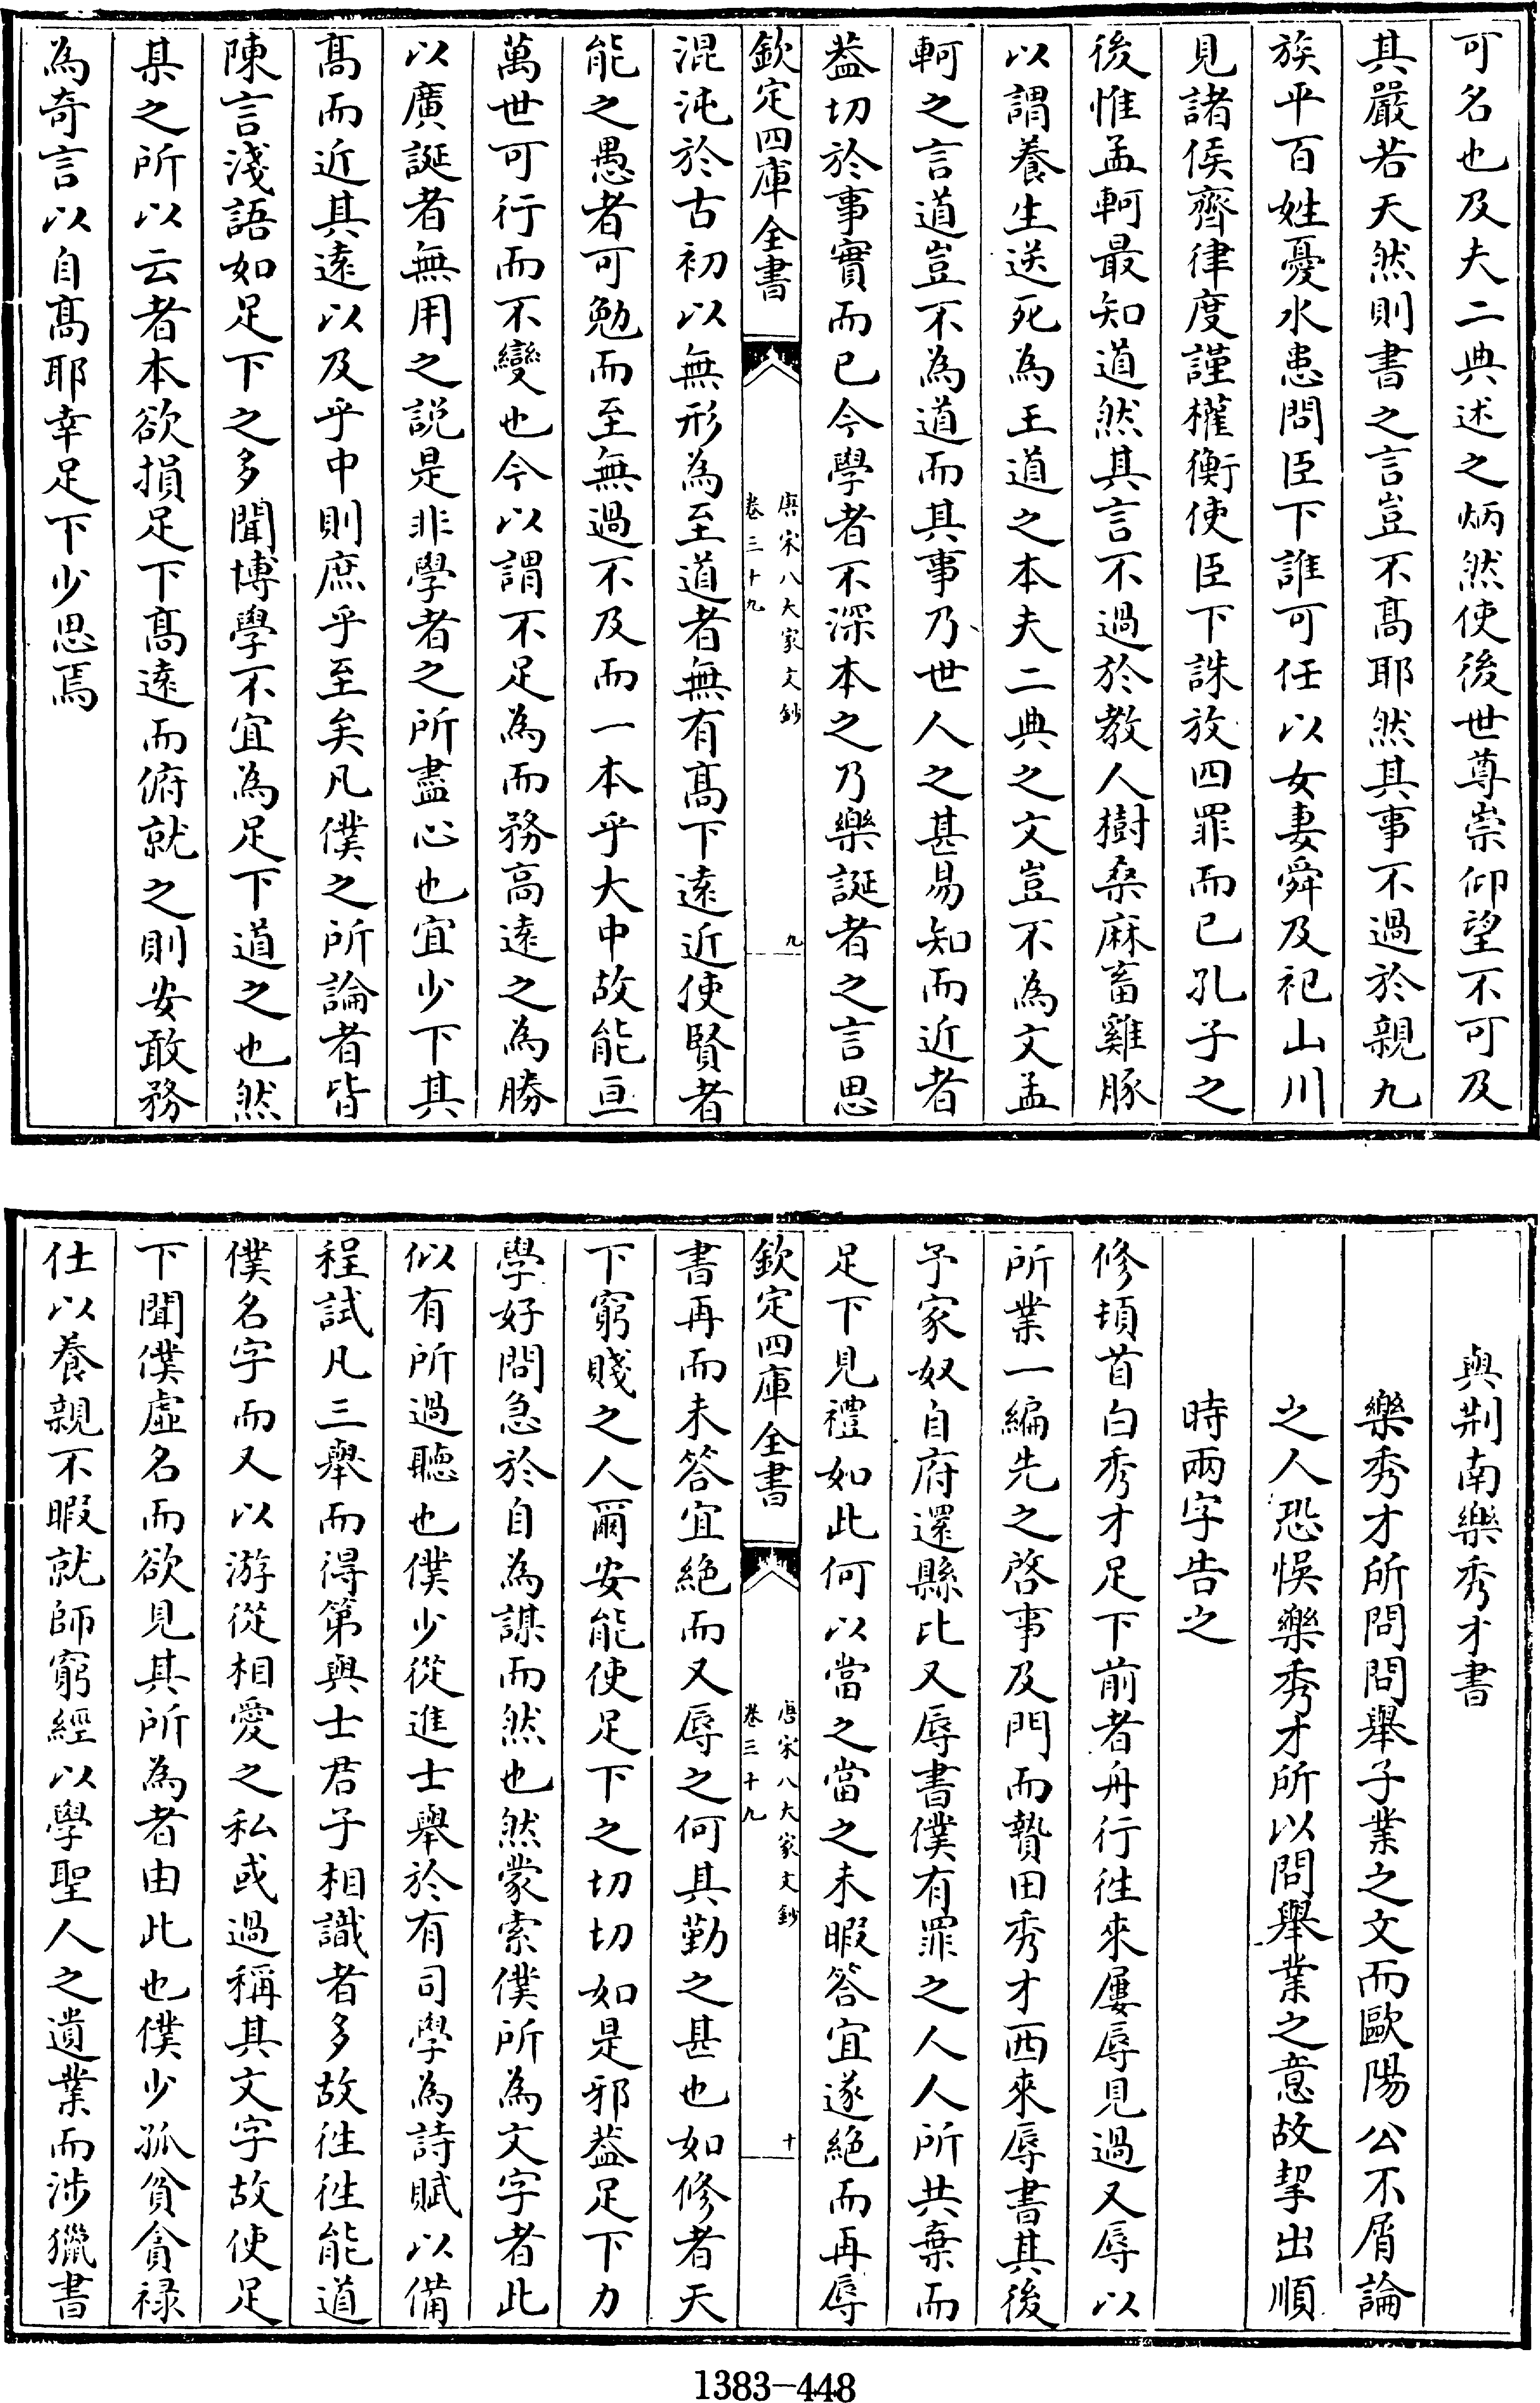 可名也及夫二典述之炳然使後世尊崇仰望不可及
其嚴若天然則書之言豈不髙耶然其事不過於親九
族平百姓憂水患問臣下誰可任以女妻舜及祀山川
見諸侯齊律度謹權衡使臣下誅放四罪而已孔子之
後惟孟軻最知道然其言不過於教人樹桑麻畜雞豚
以謂養生送死為王道之本夫二典之文豈不為文孟
軻之言道豈不為道而其事乃世人之甚易知而近者
葢切於事實而已今學者不深本之乃樂誕者之言思
欽定四庫全書
唐宋八大家文鈔
卷三十九
九
混沌於古初以無形為至道者無有髙下逺近使賢者
能之愚者可勉而至無過不及而一本乎大中故能亘
萬世可行而不變也今以謂不足為而務高逺之為勝
以廣誕者無用之説是非學者之所盡心也宜少下其
髙而近其逺以及乎中則庶乎至矣凡僕之所論者皆
陳言淺語如足下之多聞博學不宜為足下道之也然
某之所以云者本欲損足下髙逺而俯就之則安敢務
為奇言以自髙耶幸足下少思焉
與荆南樂秀才書
樂秀才所問問舉子業之文而歐陽公不屑論
之人恐悞樂秀才所以問舉業之意故挈出順
時兩字告之
修頓首白秀才足下前者舟行往來屢辱見過又辱以
所業一編先之啓事及門而贄田秀才西來辱書其後
予家奴自府還縣比又辱書僕有罪之人人所共棄而
足下見禮如此何以當之當之未暇答宜遂絶而再辱
欽定四庫全書
唐宋八大家文鈔
卷三十九
十
書再而未答宜絶而又辱之何其勤之甚也如修者天
下窮賤之人爾安能使足下之切切如是邪葢足下力
學好問急於自為謀而然也然蒙索僕所為文字者此
似有所過聽也僕少從進士舉於有司學為詩賦以備
程試凡三舉而得第與士君子相識者多故徃徃能道
僕名字而又以游從相愛之私或過稱其文字故使足
下聞僕虛名而欲見其所為者由此也僕少孤貧貪禄
仕以養親不暇就師窮經以學聖人之遺業而涉獵書
1383-448